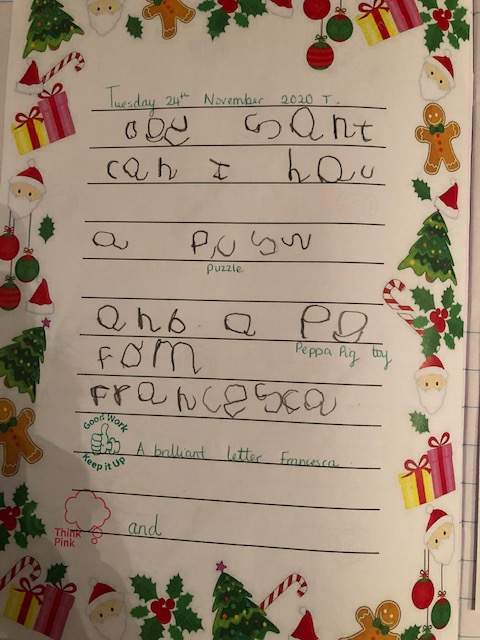 Tuesday 24th November 2020 T.
Dey sant
can I hau
a pusw
puzzle
anb a PG
Peppa Pig toy
fom
francesca
Good Work
Keep it Up
A brilliant letter Francesca
Think Pink
and